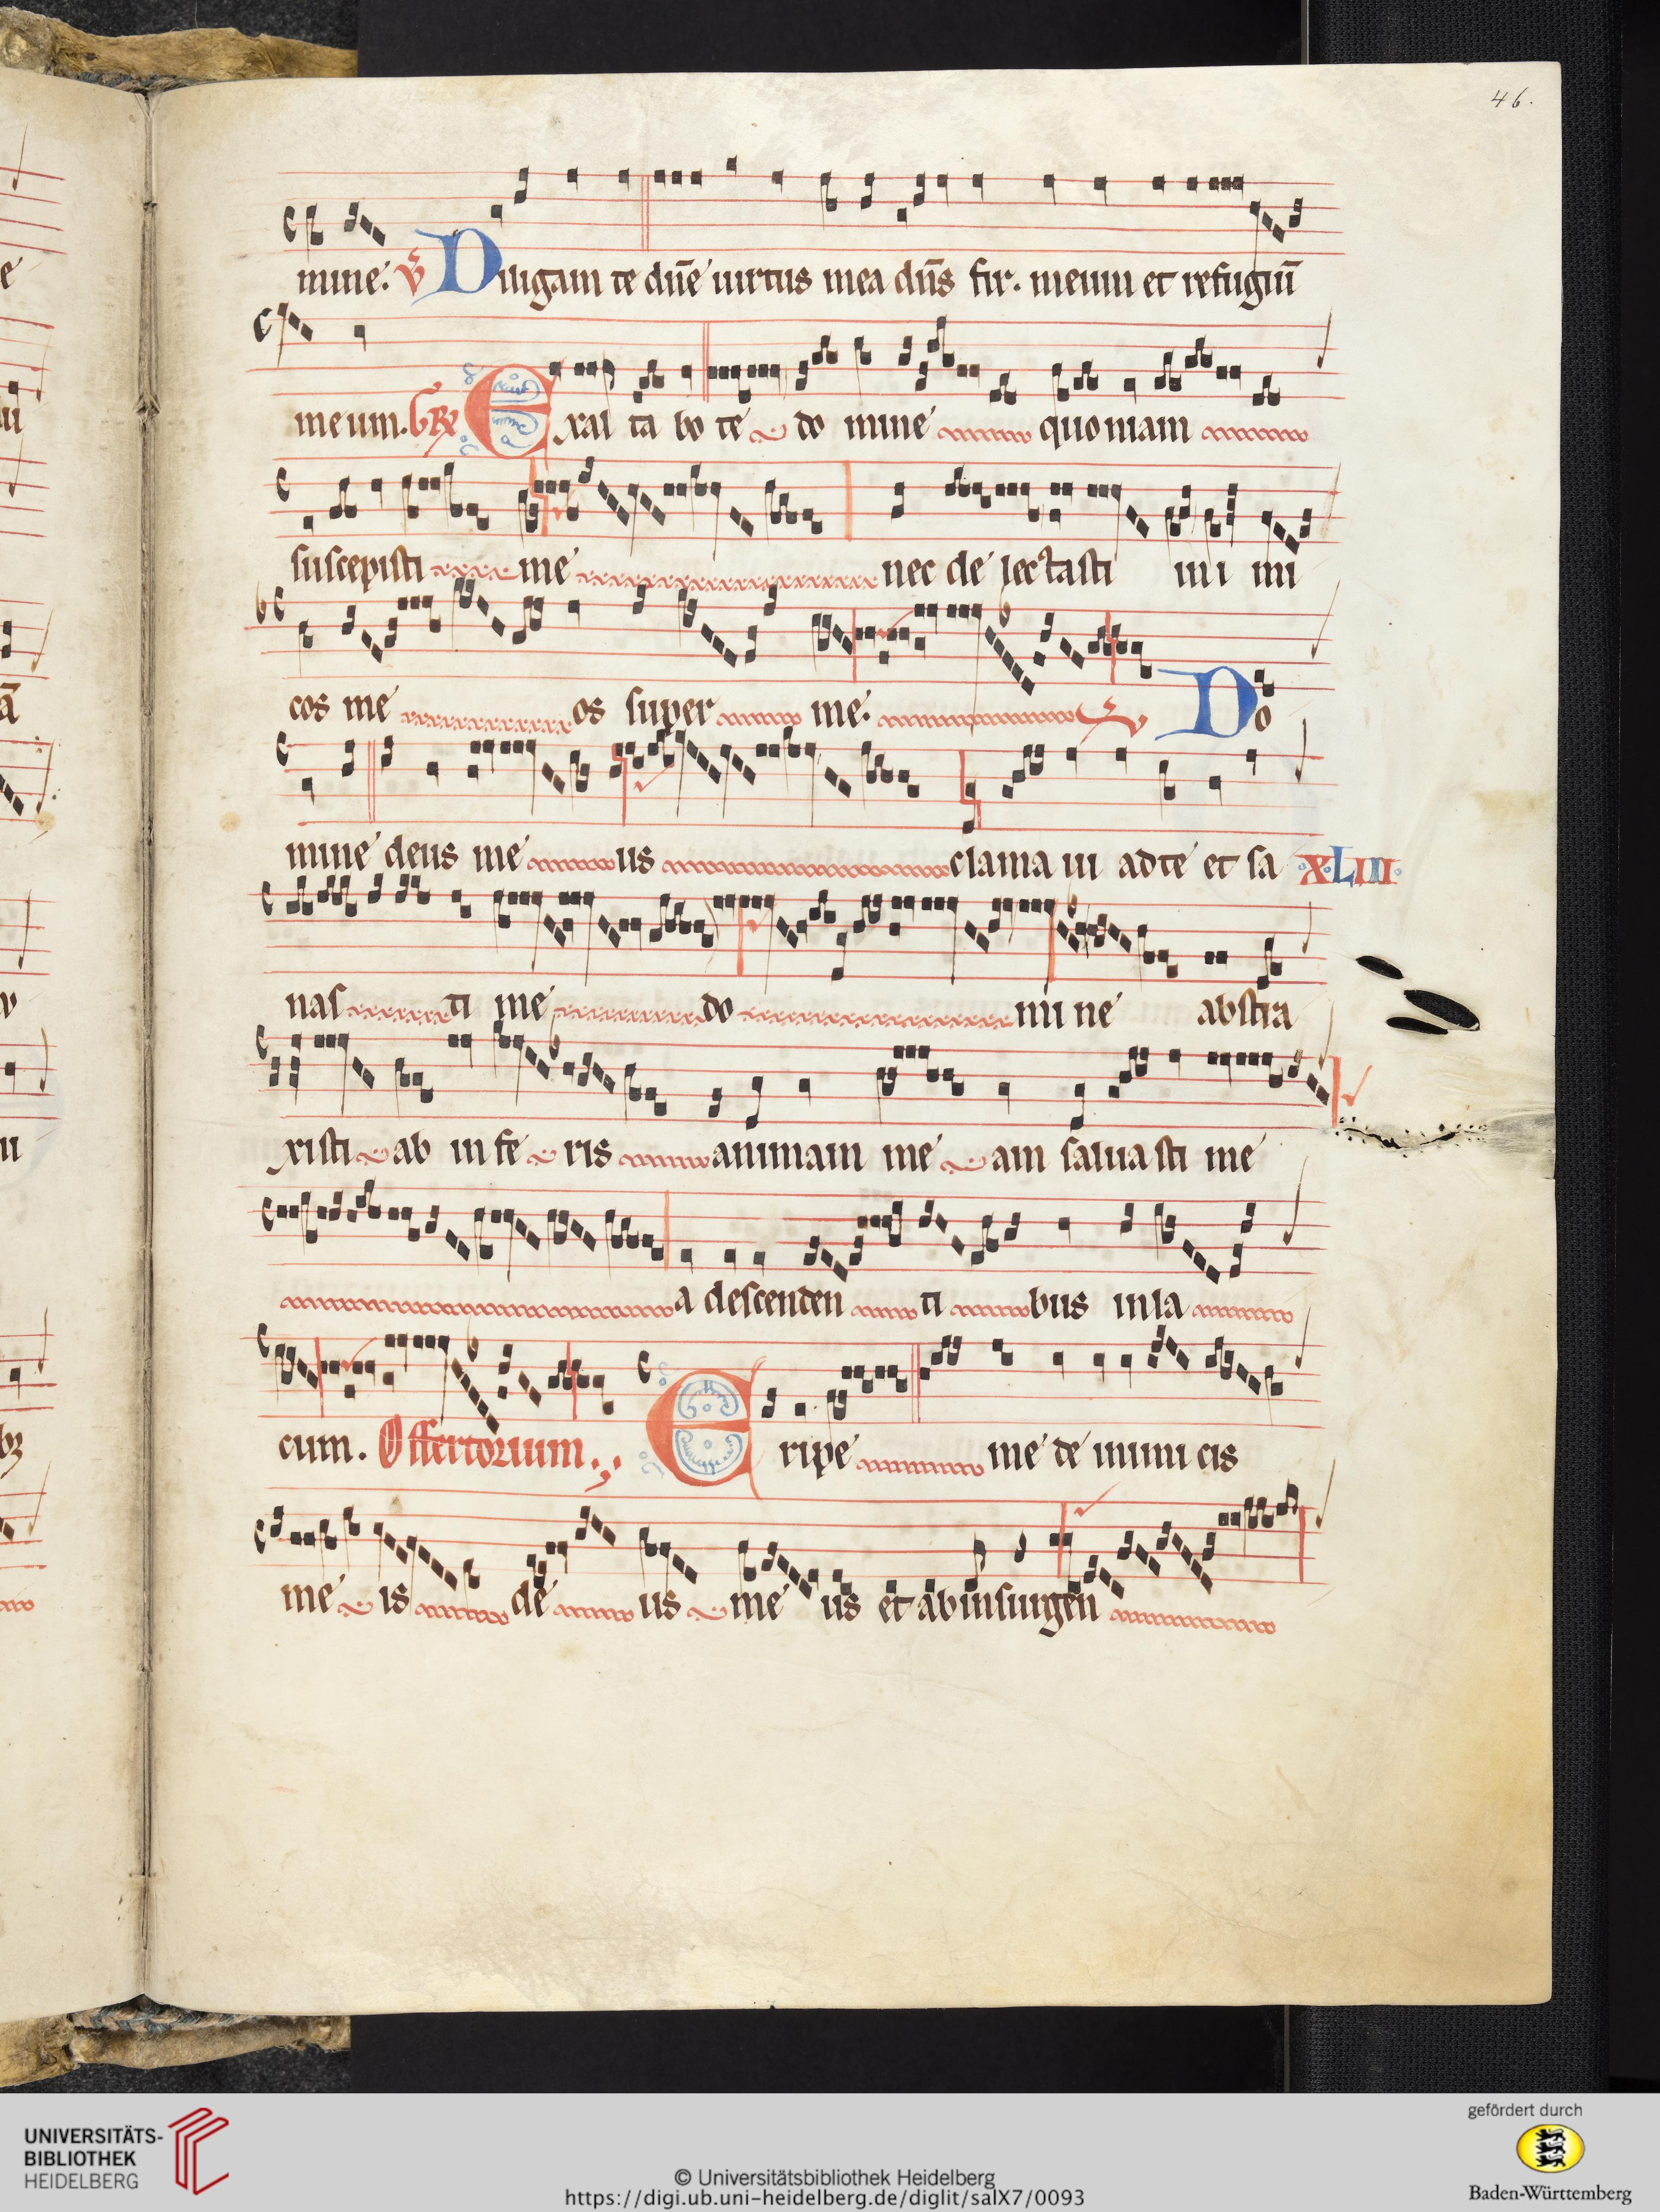 46.
mine. V Diligam te dn̄e uirtus mea dn̄s fir. meum et refugiū
meum. GR Exal ta bo te do mine quoniam
suscepisti me nec de lectasti ini mi
cos me os super me. Do
mine deus me us clama ui ad te et sa
XLIII
nas ti me do mi ne abstra
xisti ab in fe ris animam me am salua sti me
a descenden ti bus in la
cum. Offertorium. Eripe me de inimi cis
me is de us me us et ab insurgen
UNIVERSITÄTS-
BIBLIOTHEK
HEIDELBERG
© Universitätsbibliothek Heidelberg
https://digi.ub.uni-heidelberg.de/diglit/salX7/0093
gefördert durch
Baden-Württemberg